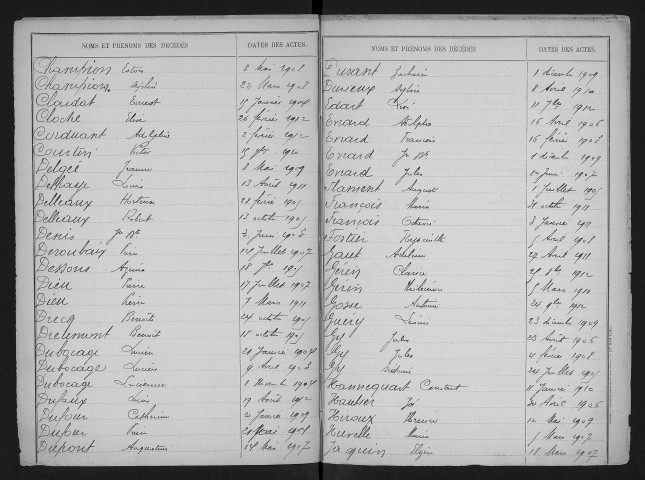 NOMS ET PRÉNOMS DES DÉCÉDÉS DATES DES ACTES.
Champion Victor 8 Mai 1908
Champion Sylvie 22 Mars 1903
Claidat Ernest 15 Janvier 1904
Cloche Elise 26 février 1912
Corduant Adolphe 2 février 1912
Courtin Victor 1910
Delgée Jeanne 8 Mai 1909
Delhaye Louis 13 Août 1911
Delleaux Hortense 28 février 1905
Delleaux Robert 13 octobre 1905
Denis Jn Bte 3 Juin 1903
Deroubaix 14 Juillet 1907
Dessons Aquina 18 1905
Dieu Pierre 17 Juillet 1907
Dieu 7 Mars 1911
Drecq Benoite 24 octobre 1905
Dreumont Benoit 15 octobre 1905
Dubocage Lucien 20 Janvier 1904
Dubocage Lucien 9 Avril 1903
Dubocage Lucienne 1 Novembre 1904
Dufaux Louis 19 Août 1912
Dufour Catherine 20 Janvier 1909
Dufour 20 Mai 1908
Dupont Augustine 28 Mai 1907
NOMS ET PRÉNOMS DES DÉCÉDÉS DATES DES ACTES.
Durant Zacharie 1 décembre 1909
Durieux Sylvie 8 Avril 1910
Edart 11 7bre 1912
Enard Adolphe 16 Avril 1906
Enard François 16 février 1903
Enard Jn Bte 1 décembre 1909
Enard Jules 10 Juin 1907
Flament August 1 Juillet 1905
François Marie 31 octobre 1911
François Octavie 3 Janvier 1911
Fortier Hyacinthe 5 Avril 1908
Gaut Adeline 27 Avril 1911
Gérin Clarisse 25 1912
Gérin Philomène 5 Mars 1910
Gosse Antoine 24 1912
Guéry Léonie 23 décembre 1909
Gy Jules 23 Août 1906
Gy Jules 4 février 1908
Gy 24 Juillet 1905
Hannecquart Constant 11 Janvier 1910
Hautier 20 Avril 1906
Hiroux 12 Mai 1909
Hurelle Marie 5 Mars 1907
Jaquin 18 Mars 1907